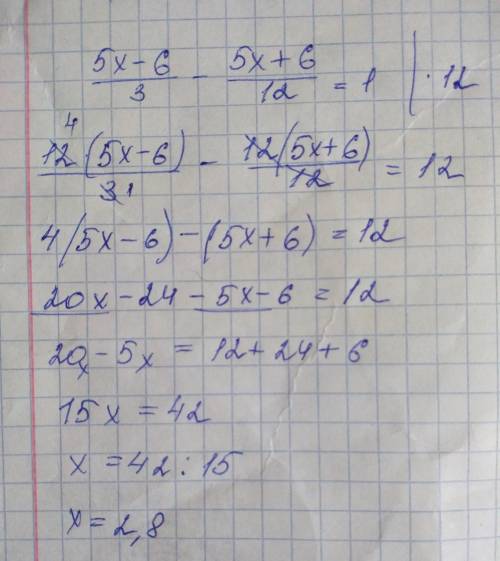 (5x-6)/3 - (5x+6)/12 = 1 | · 12
12⁴(5x-6)/3₁ - 12(5x+6)/12 = 12
4(5x-6)-(5x+6)=12
20x-24-5x-6=12
20x-5x=12+24+6
15x=42
x=42:15
x=2,8